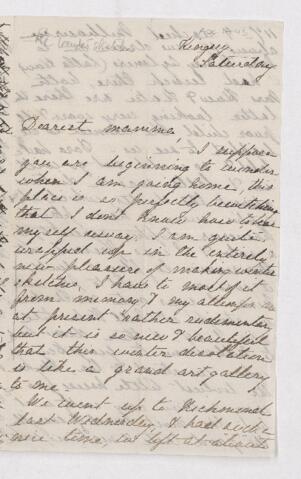 winter sketches
Kingsey
Saturday
Dearest mamma,
I suppose
you are beginning to wonder
when I am going home, this
place is so perfectly bewitching
that I dont know how to tear
myself away. I am quite
wrapped up in the entirely
new pleasure of making winter
sketches, I have to most of it
from memory & my attempts
at present rather rudimentary
but it is so new & beautiful
that this winter desolation
is like a grand art gallery
to me.
We went up to Richmond
last Wednesday & had such a
nice time, we left at about